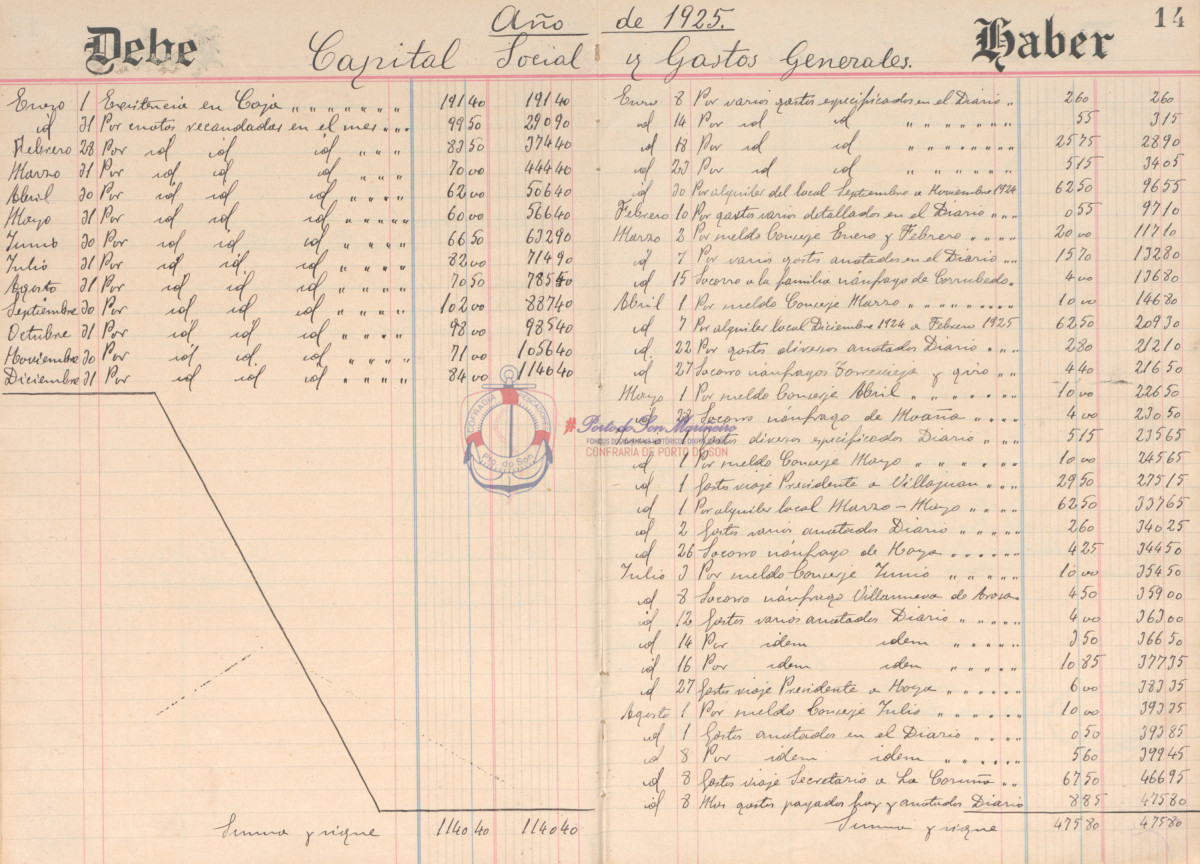 Año de 1925.
14
Debe Capital Social y Gastos Generales. Haber
Enero 1 Existencia en Caja " " " " " " " 191 40 191 40
id 31 Por cuotas recaudadas en el mes " " " 99 50 290 90
Febrero 28 Por id id id " " " 83 50 374 40
Marzo 31 Por id id id " " " 70 00 444 40
Abril 30 Por id id id " " " " 62 00 506 40
Mayo 31 Por id id id " " " " " 60 00 566 40
Junio 30 Por id id id " " " " 66 50 632 90
Julio 31 Por id id id " " " " 82 00 714 90
Agosto 31 Por id id id " " " " 70 50 785 40
Septiembre 30 Por id id id " " " " 102 00 887 40
Octubre 31 Por id id id " " " " 98 00 985 40
Noviembre 30 Por id id id " " " " 71 00 1056 40
Diciembre 31 Por id id id " " " " 84 00 1140 40
Suma y sigue 1140 40 1140 40
Enero 8 Por varios gastos especificados en el Diario " 2 60 2 60
id 14 Por id id " " " " " " " 55 3 15
id 18 Por id id " " " " " " " 25 75 28 90
id 23 Por id id " " " " " " " 5 15 34 05
id 30 Por alquiler del local Septiembre a Noviembre 1924 62 50 96 55
Febrero 10 Por gastos varios detallados en el Diario " " " 0 55 97 10
Marzo 2 Por sueldo Conserje Enero y Febrero " " " " 20 00 117 10
id 7 Por varios gastos anotados en el Diario " " 15 70 132 80
id 15 Socorro a la familia náufrago de Corrubedo. 4 00 136 80
Abril 1 Por sueldo Conserje Marzo " " " " " " " 10 00 146 80
id 7 Por alquiler local Diciembre 1924 a Febrero 1925 62 50 209 30
id 22 Por gastos diversos anotados Diario " " " 2 80 212 10
id 27 Socorro náufragos Torrevieja y giro " " 4 40 216 50
Mayo 1 Por sueldo Conserje Abril " " " " " " 10 00 226 50
id Socorro náufrago de Moaña " " " " 4 00 230 50
1 Gastos diversos especificados Diario " " 5 15 235 65
id 1 Por sueldo Conserje Mayo " " " " " " 10 00 245 65
id 1 Gastos viaje Presidente a Villajuan " " " 29 50 275 15
id 1 Por alquiler local Marzo - Mayo " " " " 62 50 337 65
id 2 Gastos varios anotados Diario " " " " 2 60 340 25
id 26 Socorro náufrago de Noya " " " " " " 4 25 344 50
Julio 3 Por sueldo Conserje Junio " " " " " 10 00 354 50
id 8 Socorro náufrago Villanueva de Arosa 4 50 359 00
id 12 Gastos varios anotados Diario " " " " " 4 00 363 00
id 14 Por idem idem " " " " " 3 50 366 50
id 16 Por idem idem " " " " " 10 85 377 35
id 27 Gastos viaje Presidente a Noya " " " " " " 6 00 383 35
Agosto 1 Por sueldo Conserje Julio " " " " " " 10 00 393 35
id 1 Gastos anotados en el Diario " " " " 0 50 393 85
id 8 Por idem idem " " " " " 5 60 399 45
id 8 Gastos viaje Secretario a La Coruña " " 67 50 466 95
id 8 Mas gastos pagados hoy y anotados Diario 8 85 475 80
Suma y sigue 475 80 475 80
COFRADIA PESCADORES
Pto. do Son
#Porto do Son Mariñeiro
FONDOS DOCUMENTAIS HISTÓRICOS
CONFRARIA DE PORTO DO SON